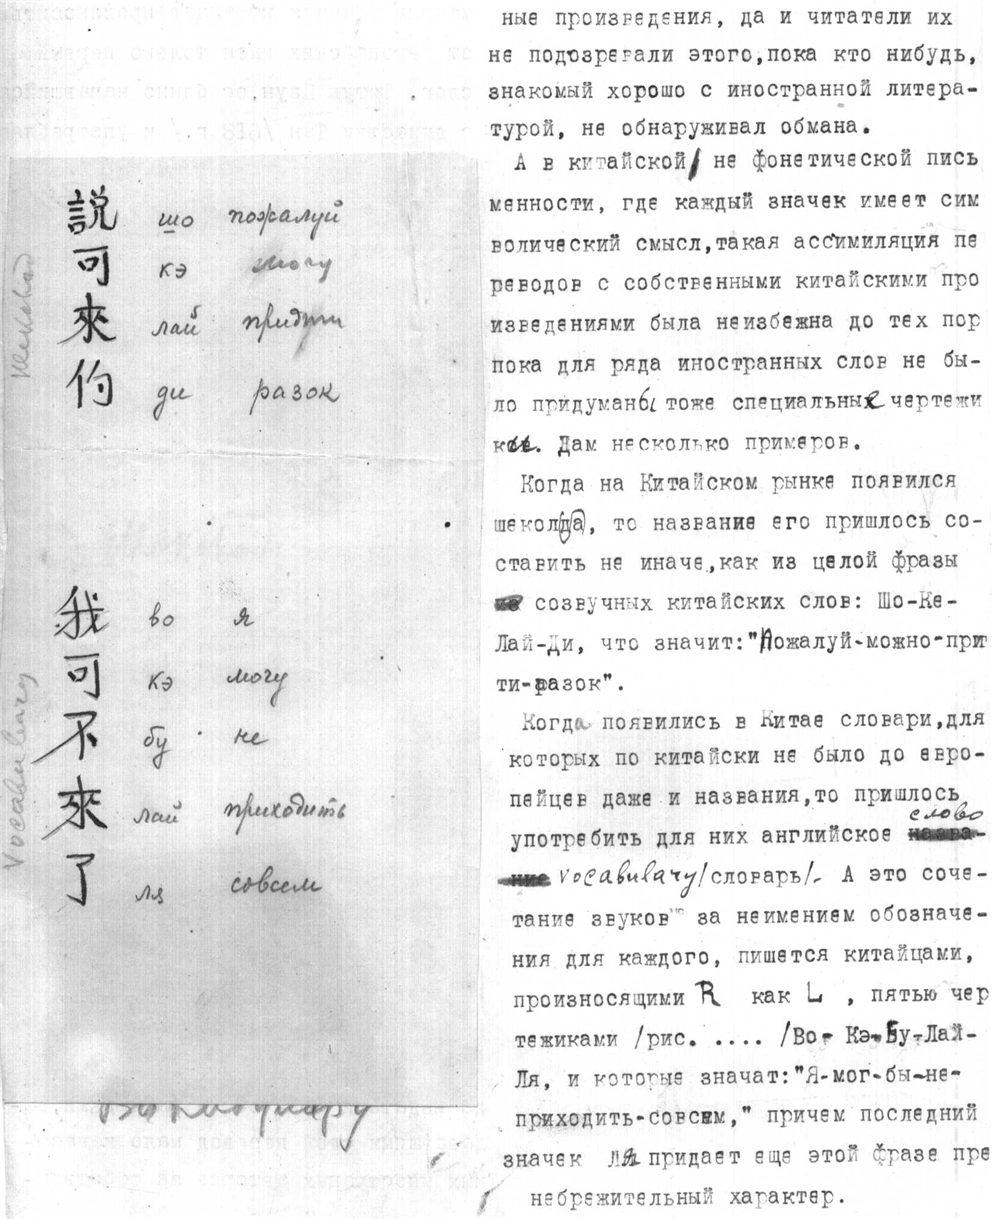 說 шо пожалуй
可 кэ могу
來 лай придти
的 ди разок
我 во я
可 кэ могу
不 бу не
來 лай приходить
了 ля совсем
Vocabulary
ные произведения, да и читатели их
не подозревали этого,пока кто нибудь,
знакомый хорошо с иностранной литера-
турой, не обнаруживал обмана.
А в китайской/ не фонетической пись
менности, где каждый значек имеет сим
волический смысл,такая ассимиляция пе
реводов с собственными китайскими про
изведениями была неизбежна до тех пор
пока для ряда иностранных слов не бы-
ло придуманы тоже специальные чертежи
ки. Дам несколько примеров.
Когда на Китайском рынке появился
шеколад, то название его пришлось со-
ставить не иначе,как из целой фразы
созвучных китайских слов: Шо-Ке-
Лай-Ди, что значит:"Пожалуй-можно-при
ти-разок".
Когда появились в Китае словари,для
которых по китайски не было до евро-
пейцев даже и названия,то пришлось
употребить для них английское слово
vocabulary/словарь/. А это соче-
тание звуков за неимением обозначе-
ния для каждого, пишется китайцами,
произносящими R как L , пятью чер
тежиками /рис. .... /Во- Кэ-Бу-Лай-
Ля, и которые значат:"Я-мог-бы-не-
приходить-совсем," причем последний
значек ля придает еще этой фразе пре
небрежительный характер.